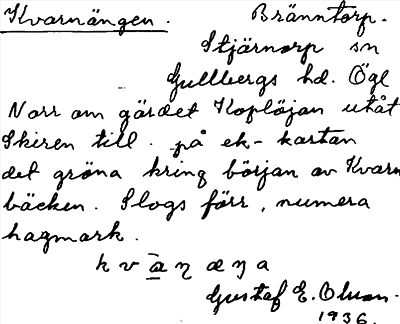 Kvarnängen. Bränntorp.
Stjärnorp sn
Gullbergs hd. Ögl
Norr om gärdet Koplöjan utåt
Skiren till. på ek-kartan
det gröna kring början av Kvarn
bäcken. Slogs förr, numera
hagmark.
k v a ŋ æ ŋ a
Gustaf E. Olson.
1936.